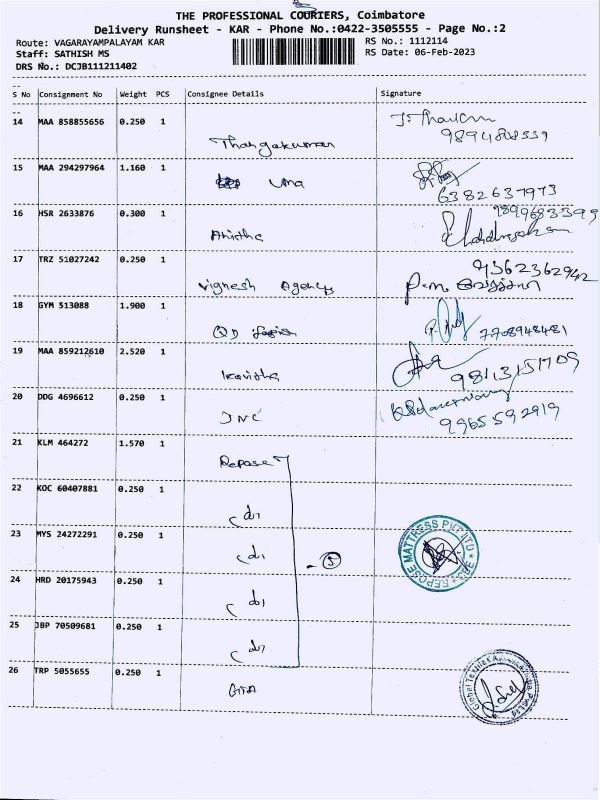 THE PROFESSIONAL COURIERS, Coimbatore
Delivery Runsheet - KAR - Phone No.:0422-3505555 - Page No.:2
Route: VAGARAYAMPALAYAM KAR RS No.: 1112114
Staff: SATHISH MS RS Date: 06-Feb-2023
DRS No.: DCJB111211402
S No Consignment No Weight PCS Consignee Details Signature
14 MAA 858855656 0.250 1 Thangakumar
15 MAA 294297964 1.160 1 Uma 6382637973
16 HSR 2633876 0.300 1 7899683399
17 TRZ 51027242 0.250 1 Vignesh Agency 9362362942
18 GYM 513088 1.900 1 7708948481
19 MAA 859212610 2.520 1 Kavitha
20 DDG 4696612 0.250 1 9965592919
21 KLM 464272 1.570 1 Repose
22 KOC 60407881 0.250 1
23 MYS 24272291 0.250 1 - 5 REPOSE MATTRESS PVT LTD
24 HRD 20175943 0.250 1
25 JBP 70509681 0.250 1
26 TRP 5055655 0.250 1